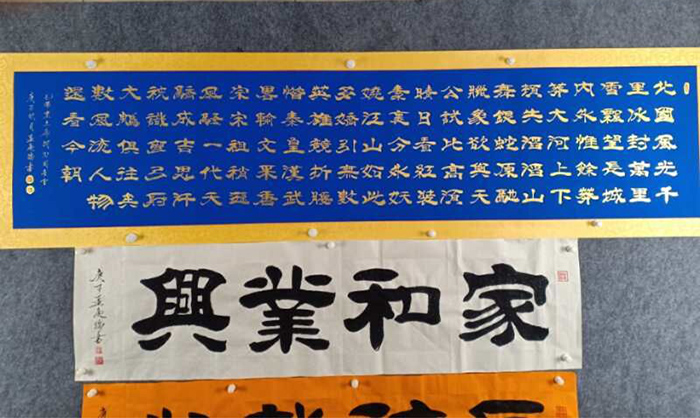 北國風光千
里冰封萬里
雪飄望長城
内外惟餘莽
莽大河上下
頓失滔滔山
舞銀蛇原馳
蠟象欲與天
公試比高須
晴日看紅裝
素裹分外妖
嬈江山如此
多嬌引無數
英雄競折腰
惜秦皇漢武
畧輸文采唐
宗宋祖稍遜
風騷一代天
驕成吉思汗
祇識彎弓射
大鵰俱往矣
數風流人物
還看今朝
家和業興